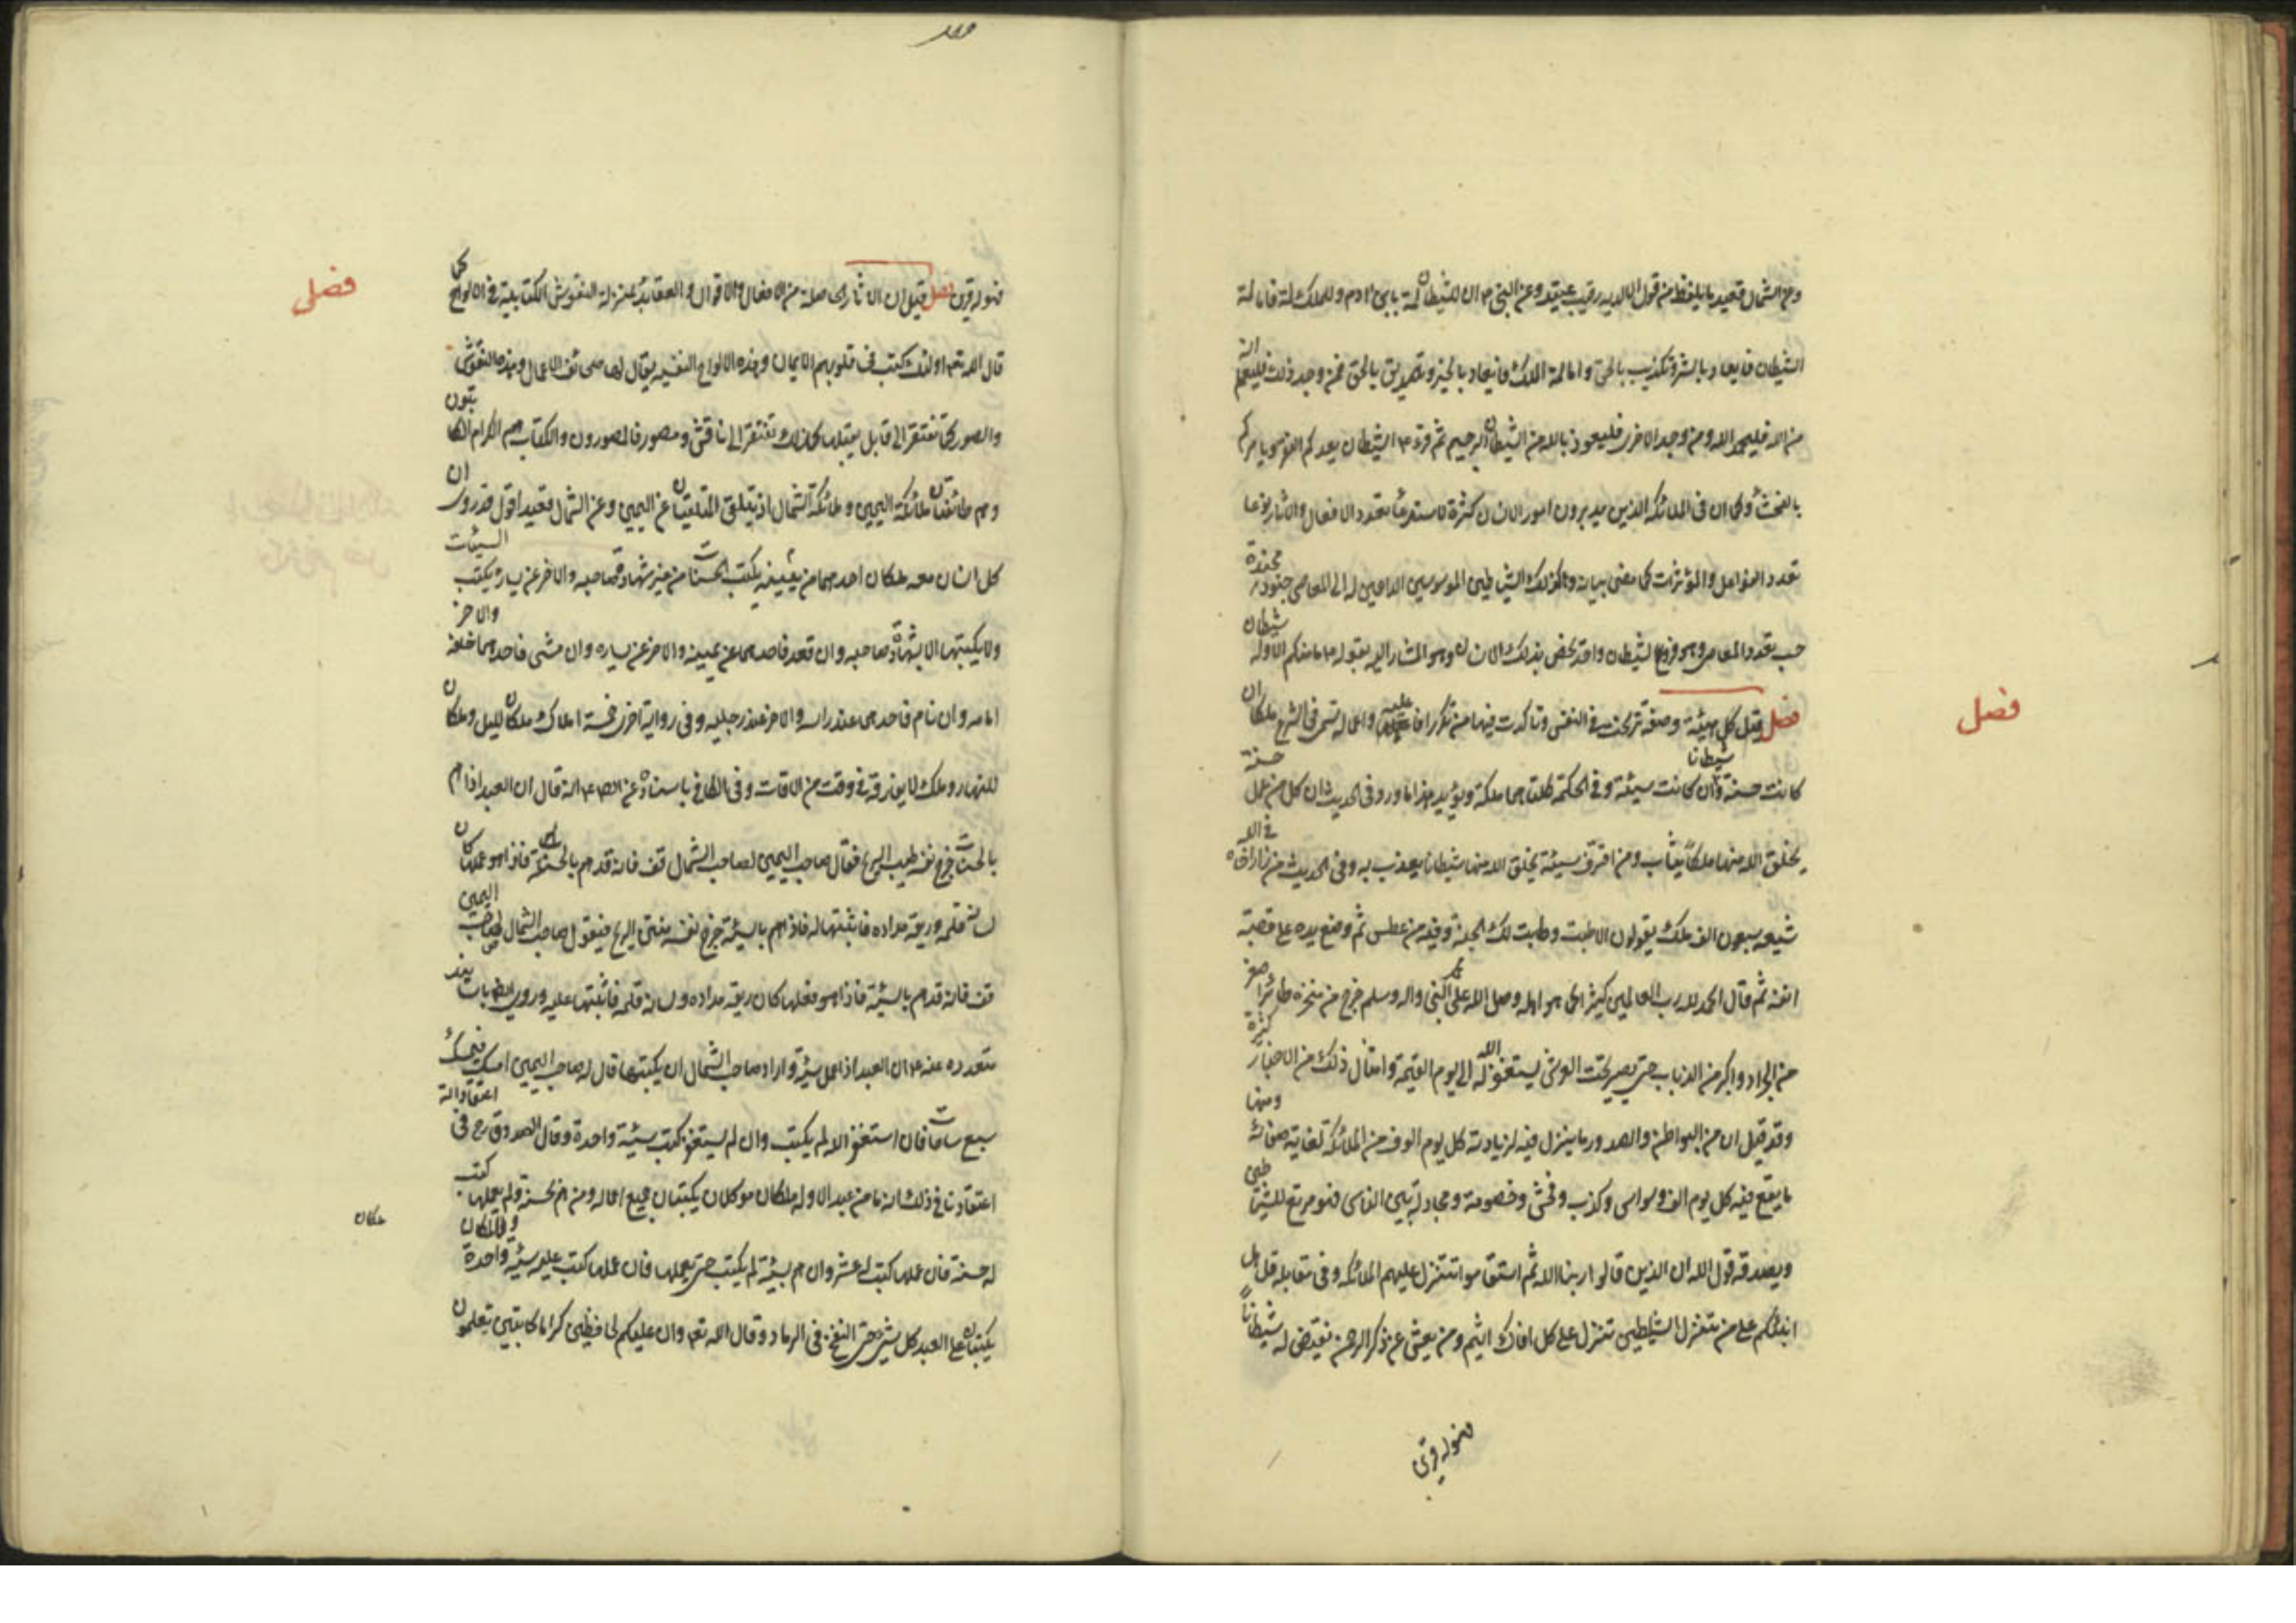 وعن الشمال قعيد ما يلفظ من قول الا لديه رقيب عتيد وعن النبي ص ان للشيطان لمة بابن ادم وللملك لمة فاما لمة
الشيطان فايعاد بالشر وتكذيب بالحق واما لمة الملك فايعاد بالخير وتصديق بالحق فمن وجد ذلك فليعلم انه
من الله فليحمد الله ومن وجد الاخرى فليتعوذ بالله من الشيطان الرجيم ثم قرء ص الشيطان يعدكم الفقر ويامركم
بالفحشاء وكما ان في الملائكة الذين يدبرون امور الانسان كثرة لاستدعاء تعدد الافعال والاثار نوعا
تعدد الفواعل والمؤثرات كما مضى بيانه وكذلك الشياطين الموسوسين الداعين له الى المعاصي جنود مجندة
حسب تعدد المعاصي وهو فروع لشيطان واحد يختص بذلك الانسان وهو المشار اليه بقوله ص ما منكم الا وله شيطان
فصل وقيل كل هيئة وصفة ترسخت في النفس وتاكدت فيها من تكرر افاعيله واعماله تسمى في الشرع ملكا ان
كانت حسنة وشيطانا ان كانت سيئة وفي الحكمة كلتاهما ملكة ويؤيد هذا ما ورد في الحديث ان كل من عمل حسنة
يخلق الله منها ملكا يثاب به ومن اقترف سيئة يخلق الله منها شيطانا يعذب به وفي الحديث من زار اخاه في الله
شيعه سبعون الف ملك يقولون الا طبت وطابت لك الجنة وفيه من عطس ثم وضع يده على قصبة
انفه ثم قال الحمد لله رب العالمين كثيرا كما هو اهله وصلى الله على محمد النبي واله وسلم خرج من منخره طائر اصغر
من الجراد واكبر من الذباب حتى يصير تحت العرش يستغفر الله له الى يوم القيمة وامثال ذلك من الاخبار كثيرة
وقد قيل ان من البواطن والصدور ما ينزل فيه لزيارته كل يوم الوف من الملائكة لغاية صفائه ومنها
ما يقع فيه كل يوم الف وسواس وكذب وفحش وخصومة ومجادلة بين الناس فهو مرتع للشياطين
ويصدقه قول الله ان الذين قالوا ربنا الله ثم استقاموا تتنزل عليهم الملائكة وفي مقابله قل هل
انبئكم على من تتنزل الشياطين تنزل على كل افاك اثيم ومن يعش عن ذكر الرحمن نقيض له شيطانا
فهو له قرين
فصل
فهو له قرين فصل قيل ان الاثار الحاصلة من الافعال والاقوال والعقايد بمنزلة النقوش الكتابية في الالواح كما
قال الله تعم اولئك كتب في قلوبهم الايمان وهذه الالواح النفسية يقال لها صحائف الاعمال وهذه النقوش
والصور كما تفتقر الى قابل يقبلها كذلك تفتقر الى ناقش ومصور فالمصورون والكتاب هم الكرام الكاتبون
وهم طائفتان ملائكة اليمين وملائكة الشمال اذ يتلقى المتلقيان عن اليمين وعن الشمال قعيد اقول قد روى ان
كل انسان معه ملكان احدهما من يمينه يكتب الحسنات من غير شهادة صاحبه والاخر عن يساره يكتب السيئات
ولا يكتبها الا بشهادة صاحبه وان قعد فاحدهما عن يمينه والاخر عن يساره وان مشى فاحدهما خلفه والاخر
امامه وان نام فاحدهما عند راسه والاخر عند رجليه وفي رواية اخرى خمسة املاك ملكان لليل وملكان
للنهار وملك لا يفارقه في وقت من الاوقات وفي الكافي باسناده عن الصم انه قال ان العبد اذا هم
بالحسنات خرج نفسه طيب الريح فقال صاحب اليمين لصاحب الشمال قف فانه قد هم بالحسنة فاذا هو عملها كان
لسانه قلمه وريقه مداده فاثبتها له فاذا هم بالسيئة خرج نفسه منتن الريح فيقول صاحب الشمال لصاحب اليمين
قف فانه قد هم بالسيئة فاذا هو فعلها كان ريقه مداده ولسانه قلمه فاثبتها عليه وروى ايضا باسانيد
متعدده عنه ص ان العبد اذا عمل سيئة واراد صاحب الشمال ان يكتبها قال له صاحب اليمين امسك فيمسك
سبع ساعات فان استغفر الله لم يكتب وان لم يستغفر كتب سيئة واحدة وقال الصدوق رح في اعتقاداته
اعتقادنا في ذلك انه ما من عبد الا وله ملكان موكلان يكتبان جميع اعماله ومن هم بحسنة ولم يعملها كتب
له حسنة فان عملها كتب له عشر وان هم بسيئة لم يكتب حتى يعملها فان عملها كتب عليه سيئة واحدة والملكان
يكتبان على العبد كل شيء حتى النفخ في الرماد وقال الله تعم وان عليكم لحافظين كراما كاتبين يعلمون
فصل
ملكان